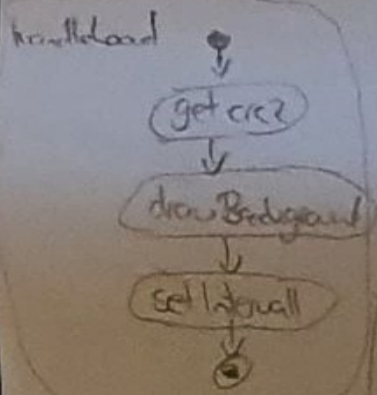 handleLoad
get crc2
draw Background
set Intervall